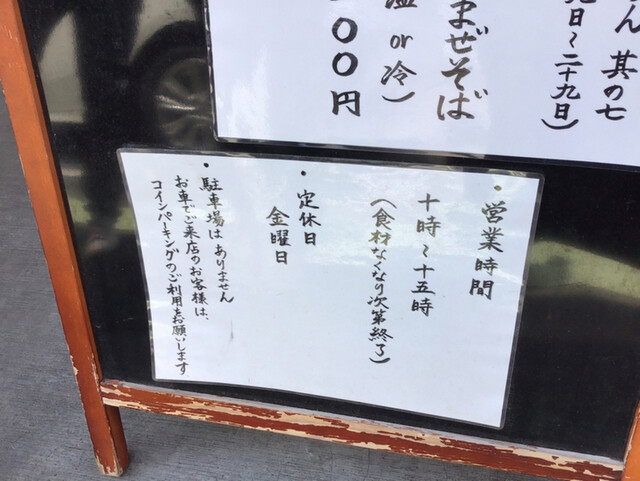 ん 其の七
九日～二十九日)
まぜそば
温 or 冷)
００円
・営業時間
十時～十五時
(食材なくなり次第終了)
・定休日
金曜日
・駐車場は ありません
お車でご来店のお客様は、
コインパーキングのご利用をお願いします